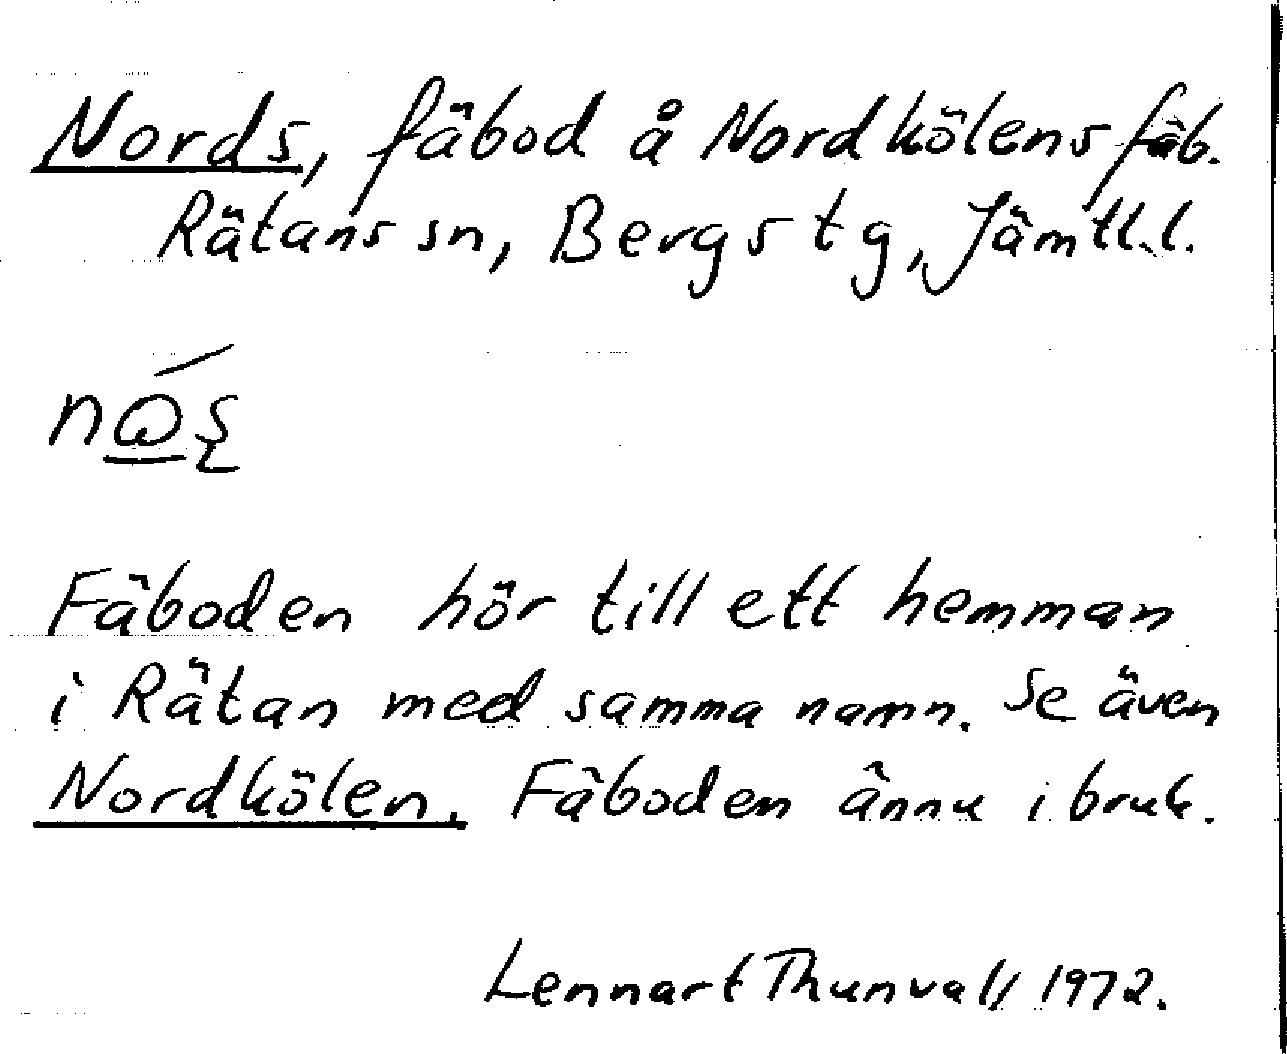 Nords, fäbod å Nordkölens fäb.
Rätans sn, Bergs tg, Jämtl.l.
Fäboden hör till ett hemman
i Rätan med samma namn. Se även
Nordkölen. Fäboden ännu i bruk.
Lennart Thunvall 1972.